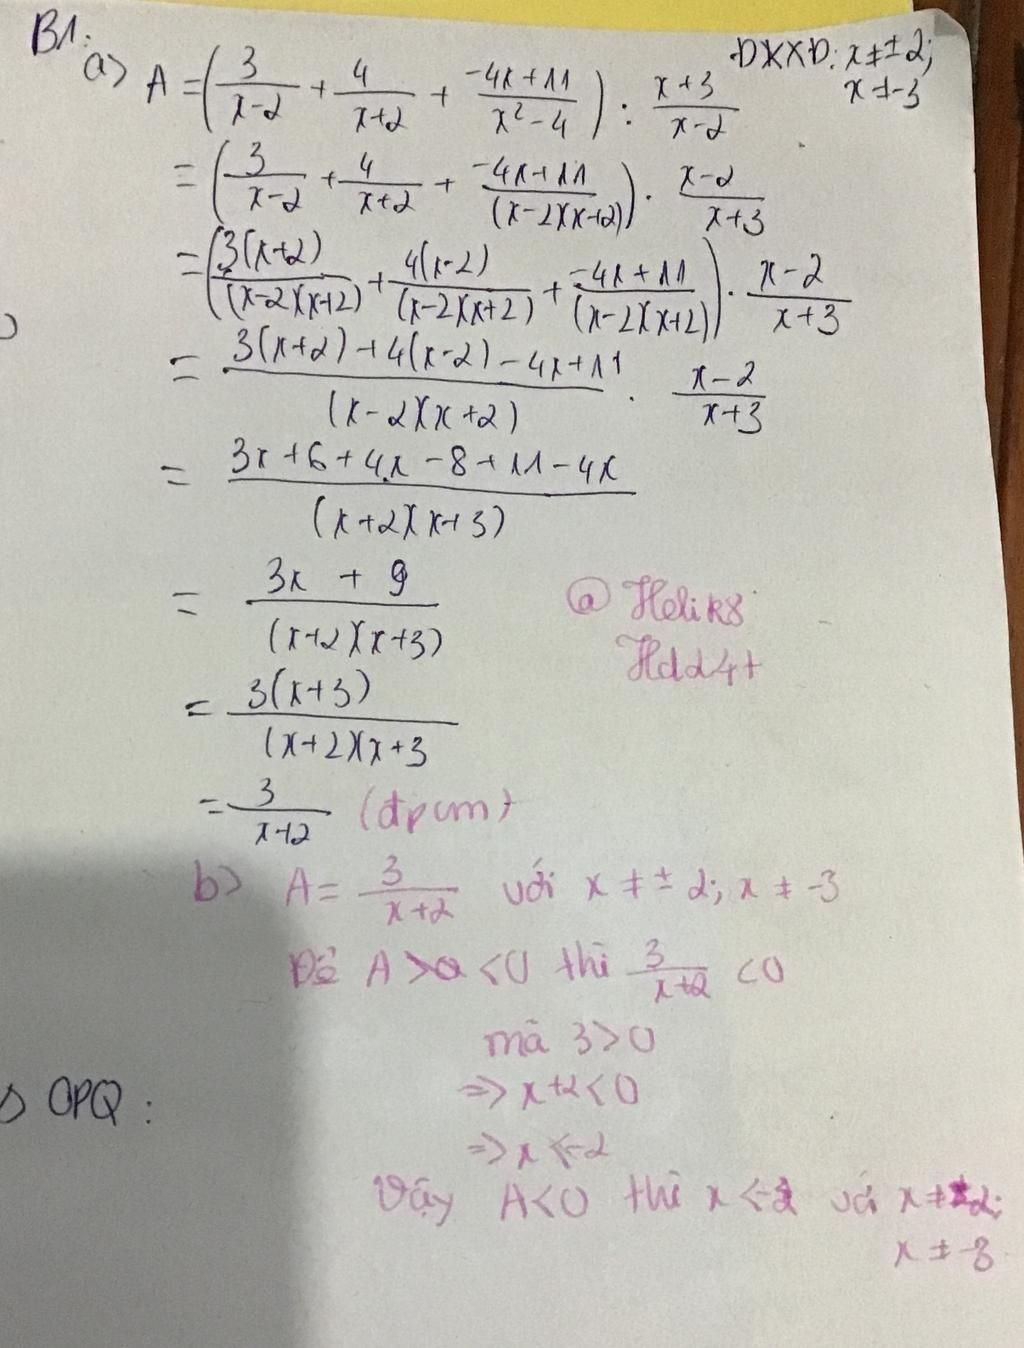 B1:
a> A = (3/(x-2) + 4/(x+2) + (-4x+11)/(x²-4)) : (x+3)/(x-2)
ĐKXĐ: x ≠ ±2;
x ≠ -3
= (3/(x-2) + 4/(x+2) + (-4x+11)/((x-2)(x+2))) . (x-2)/(x+3)
= (3(x+2)/((x-2)(x+2)) + 4(x-2)/((x-2)(x+2)) + (-4x+11)/((x-2)(x+2))) . (x-2)/(x+3)
= (3(x+2)+4(x-2)-4x+11)/((x-2)(x+2)) . (x-2)/(x+3)
= (3x+6+4x-8+11-4x)/((x+2)(x+3))
= (3x + 9)/((x+2)(x+3))
@ Helik8
Hd24+
= 3(x+3)/((x+2)(x+3
= 3/(x+2) (đpcm)
b> A = 3/(x+2) với x ≠ ± 2; x ≠ -3
Để A > < 0 thì 3/(x+2) < 0
mà 3 > 0
=> x+2 < 0
=> x < -2
OPQ :
Vậy A < 0 thì x < -2 với x ≠ 2;
x ≠ -3